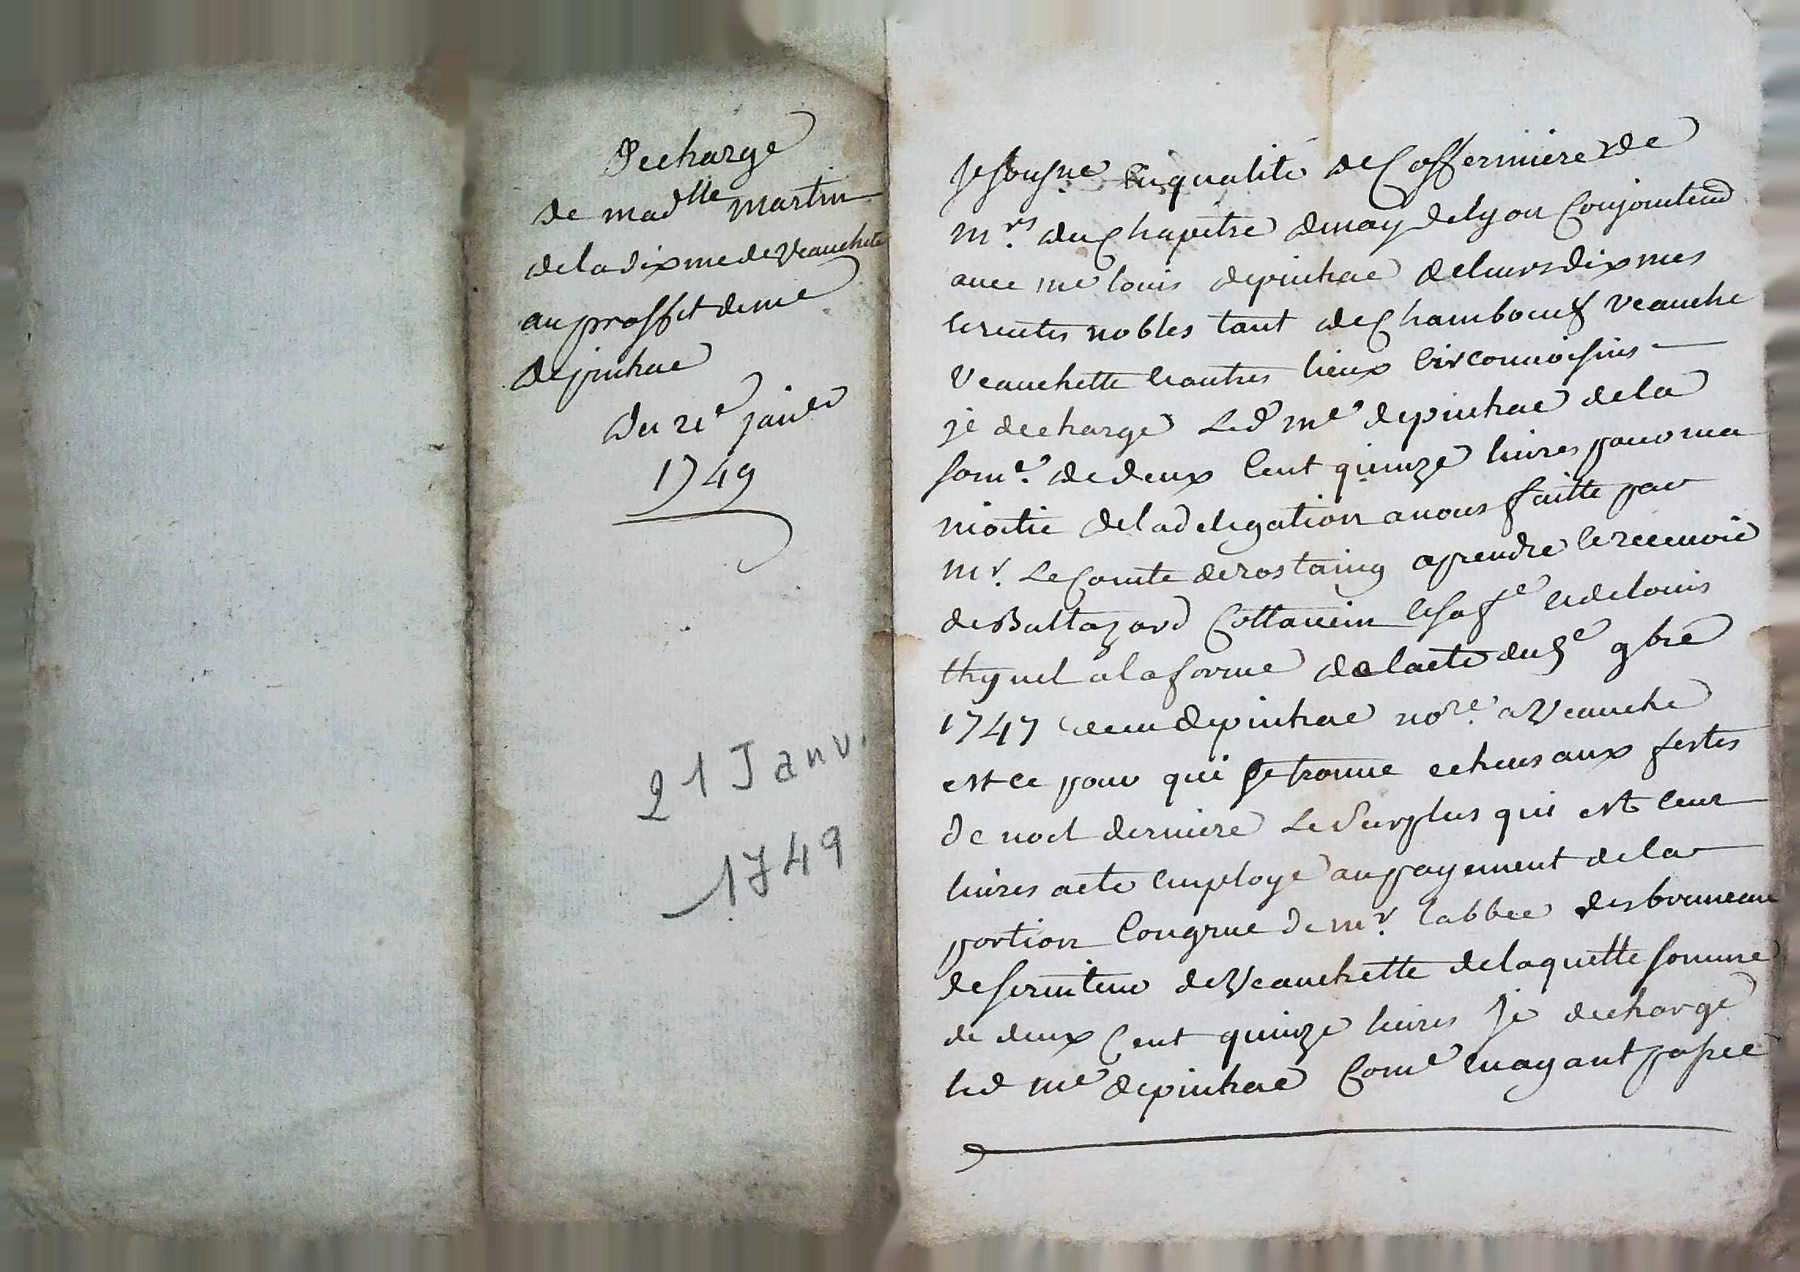 Decharge
de mad.lle martin
de la dixme de Veauchette
au proffit de me
depinhac
du 21e janer
1749
21 Janv.
1749
Je sousne en qualité de Coffermiere de
mrs. du Chapitre denay de lyon Conjointemt
avec me louis depinhac de leurs dixmes
et rentes nobles tant de Chambocuf Veauche
Veauchette et autres lieux Circonvoisins
je decharge Led. me depinhac de la
some. de deux Cent quinze livres pour ma
moitie de la delegation a nous faitte par
mr. Le Comte de rostaing a prendre et recevoir
de Baltazard Cottancin et sa fe et de louis
a la forme de lacte du 9bre
1747 recu depinhac nore. a Veauche
est ce pour qui se trouve echeus aux festes
de noel derniere Le Surplus qui est Cent
livres a ete employé au payement de la
portion Congrue de mr. labbee desbruneaux
deserviteur de Veauchette de laquelle somme
de deux Cent quinze livres Je decharge
led me depinhac Come mayant passée